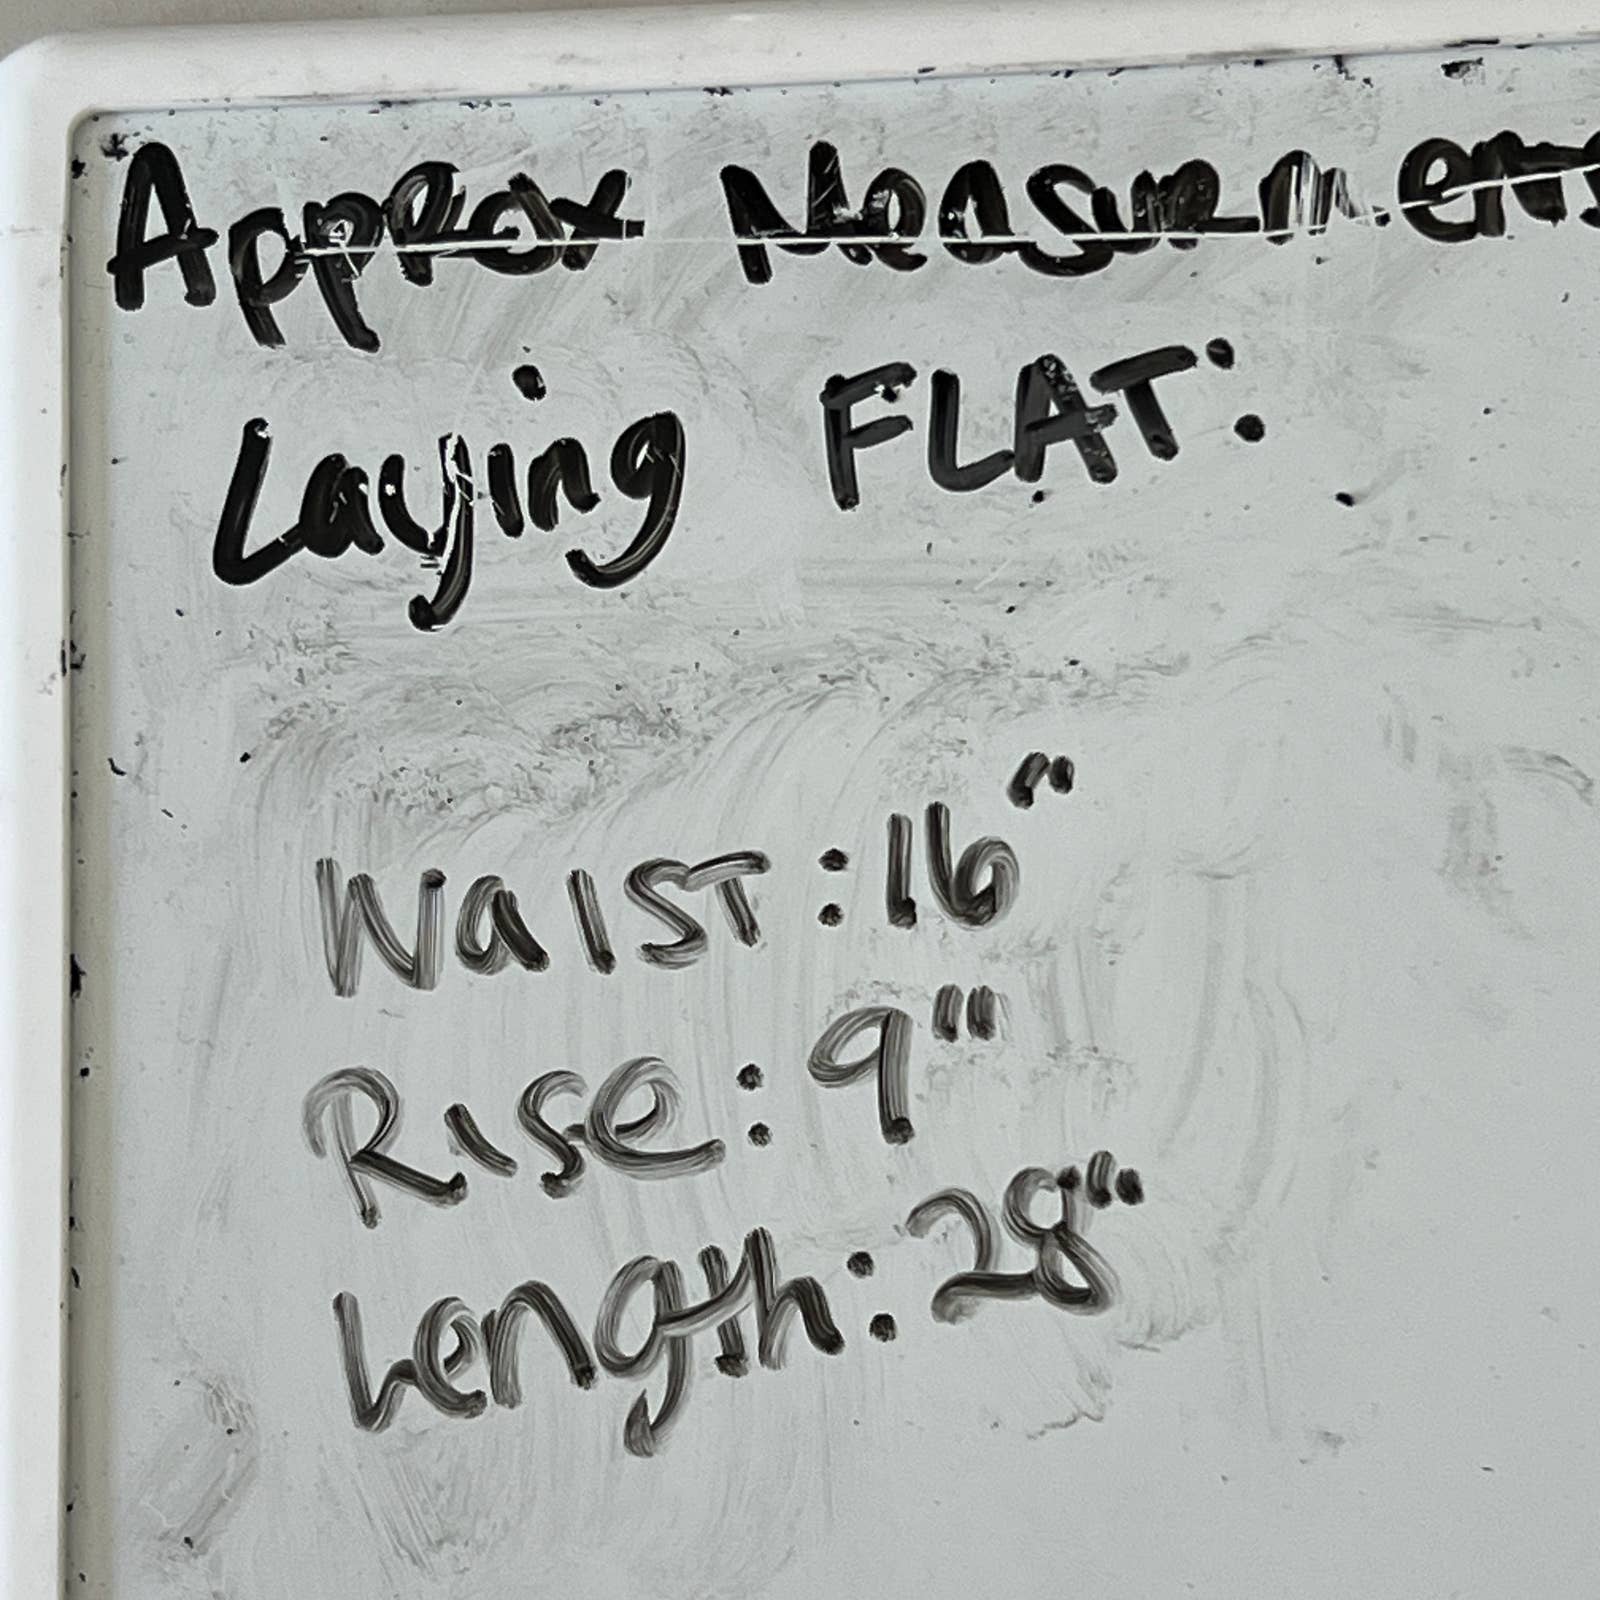 Approx Measurments
Laying FLAT:
Waist: 16"
Rise: 9"
Length: 28"